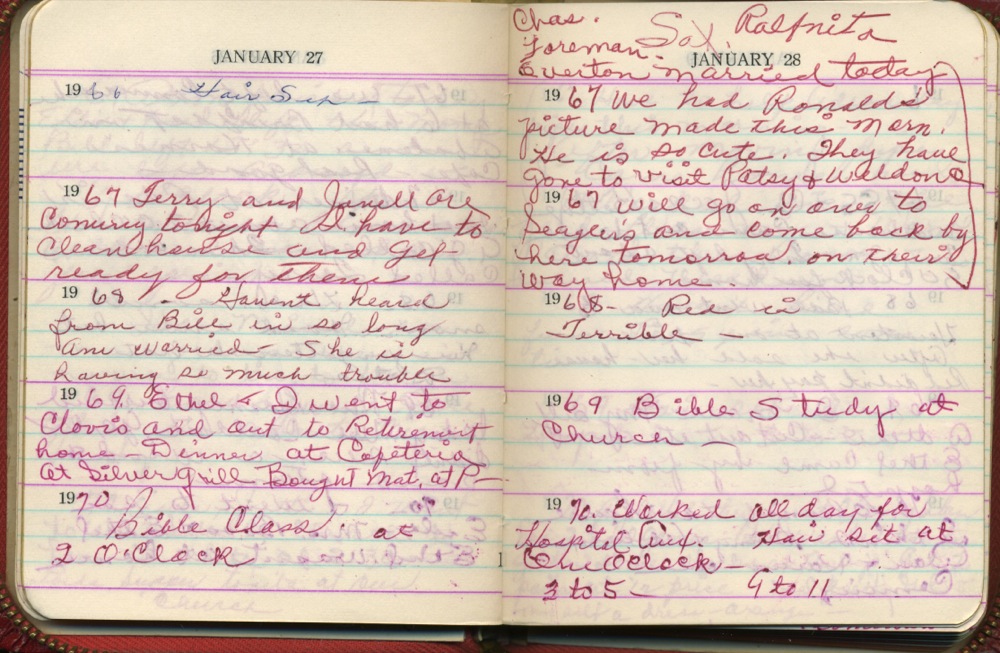 JANUARY 27
1966 Hair
1967 Terry and Janell are
coming tonight I have to
clean house and get
ready for them
1968. Havent heard
from Bill in so long
am warried - She is
having so much trouble
1969. Ethel & I went to
Clovis and out to Retirement
home - Dinner at Cafeteria
at Silver Grill Bought Mat. at P-
1970
Bible Class. at
2 O'Clock
church
Chas. Sax Ralfnita
Foreman
JANUARY 28
Everton married today
1967 We had Ronalds
picture made this morn.
He is so cute. They have
gone to visit Patsy & Weldon
1967 will go on over to
Seagler's and come back by
here tomorrow. on their
way home.
1968- Red is
Terrible -
1969 Bible Study at
Church -
1970. Worked all day for
Hospital Aux. Hair set at
One oclock -
3 to 5 - 9 to 11